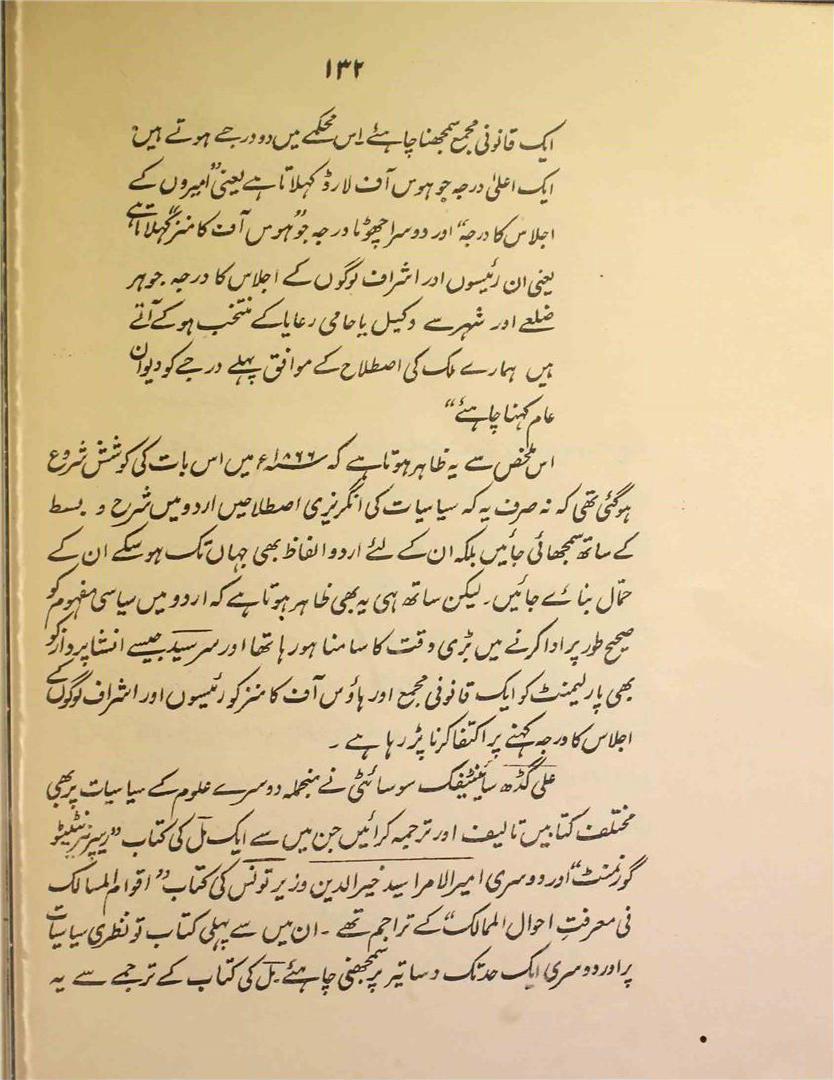 ۱۳۲
ایک قانونی مجمع سمجھنا چاہئے۔ اس محکمے میں دو درجے ہوتے ہیں
ایک اعلیٰ درجہ جو ہوس آف لارڈ کہلاتا ہے یعنی ”امیروں کے
اجلاس کا درجہ“ اور دوسرا چھوٹا درجہ جو ”ہوس آف کامنز“ کہلاتا ہے
یعنی ان رئیسوں اور اشراف لوگوں کے اجلاس کا درجہ جو ہر
ضلعے اور شہر سے وکیل یا حامی رعایا کے منتخب ہو کے آتے
ہیں ہمارے ملک کی اصطلاح کے موافق پہلے درجے کو دیوان
عام کہنا چاہئے“
اس ملخص سے یہ ظاہر ہوتا ہے کہ ۱۸۶۶ء میں اس بات کی کوشش شروع
ہو گئی تھی کہ نہ صرف یہ کہ سیاسیات کی انگریزی اصطلاحیں اردو میں شرح و بسط
کے ساتھ سمجھائی جائیں بلکہ ان کے لئے اردو الفاظ بھی جہاں تک ہو سکے ان کے
حمّال بنائے جائیں۔ لیکن ساتھ ہی یہ بھی ظاہر ہوتا ہے کہ اردو میں سیاسی مفہوم کو
صحیح طور پر ادا کرنے میں بڑی وقت کا سامنا ہو رہا تھا اور سرسید جیسے انشا پرداز کو
بھی پارلیمنٹ کو ایک قانونی مجمع اور ہاؤس آف کامنز کو رئیسوں اور اشراف لوگوں کے
اجلاس کا درجہ کہنے پر اکتفا کرنا پڑ رہا ہے ۔
علی گڈھ سائینٹیفک سوسائٹی نے منجملہ دوسرے علوم کے سیاسیات پر بھی
مختلف کتابیں تالیف اور ترجمہ کرائیں جن میں سے ایک مل کی کتاب ”ریپرزنٹیٹو
گورنمنٹ“ اور دوسری امیر الامرا سید خیرالدین وزیر تونس کی کتاب ”اقوام المسالک
فی معرفتِ احوال الممالک“ کے تراجم تھے ۔ ان میں سے پہلی کتاب تو نظری سیاسیات
پر اور دوسری ایک حد تک دساتیر پر سمجھنی چاہئے۔ مل کی کتاب کے ترجمے سے یہ